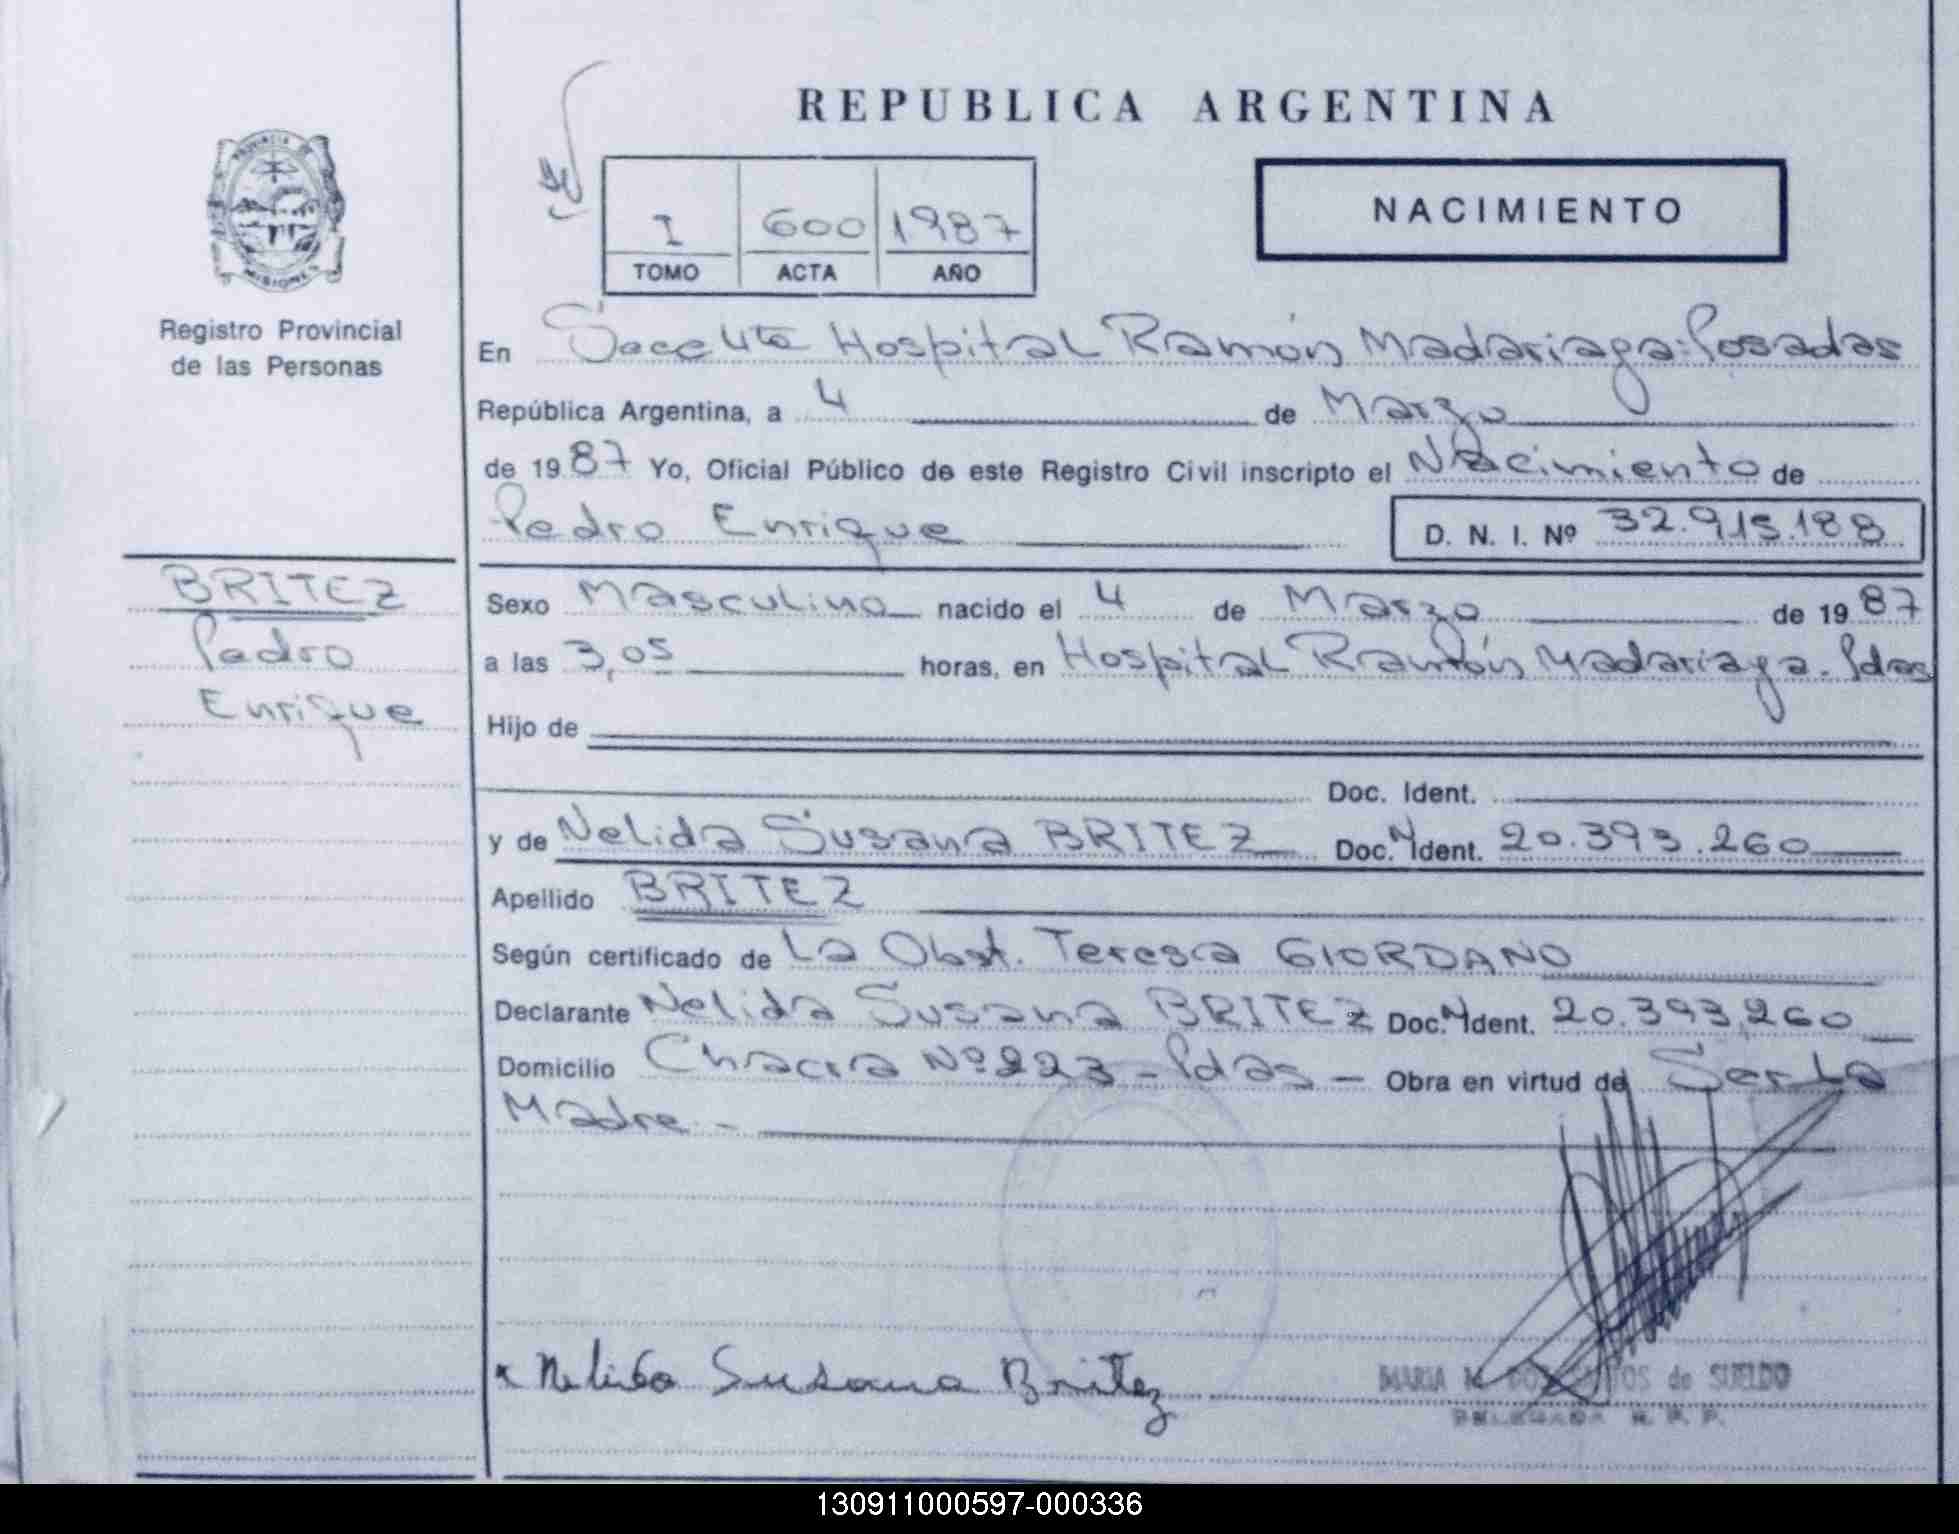 REPUBLICA ARGENTINA
PROVINCIA DE
MISIONES
Registro Provincial
de las Personas
I 600 1987
TOMO ACTA AÑO
NACIMIENTO
En Hospital Ramón Madariaga. Posadas
República Argentina, a 4 de Marzo
de 1987 Yo, Oficial Público de este Registro Civil inscripto el Nacimiento de
Pedro Enrique D. N. I. Nº 32.915.188
BRITEZ
Pedro
Enrique
Sexo Masculino nacido el 4 de Marzo de 1987
a las 3,05 horas, en Hospital Ramón Madariaga. Pdas
Hijo de
Doc. Ident.
y de Nelida Susana BRITEZ Doc. N Ident. 20.393.260
Apellido BRITEZ
Según certificado de La Obst. Teresa GIORDANO
Declarante Nelida Susana BRITEZ Doc. N Ident. 20.393,260
Domicilio Chacra Nº 223 - Pdas - Obra en virtud de Ser La
Madre -
x Nelida Susana Britez
MARIA M. DOS SANTOS de SUELDO
DELEGADA R. P. P.
130911000597-000336